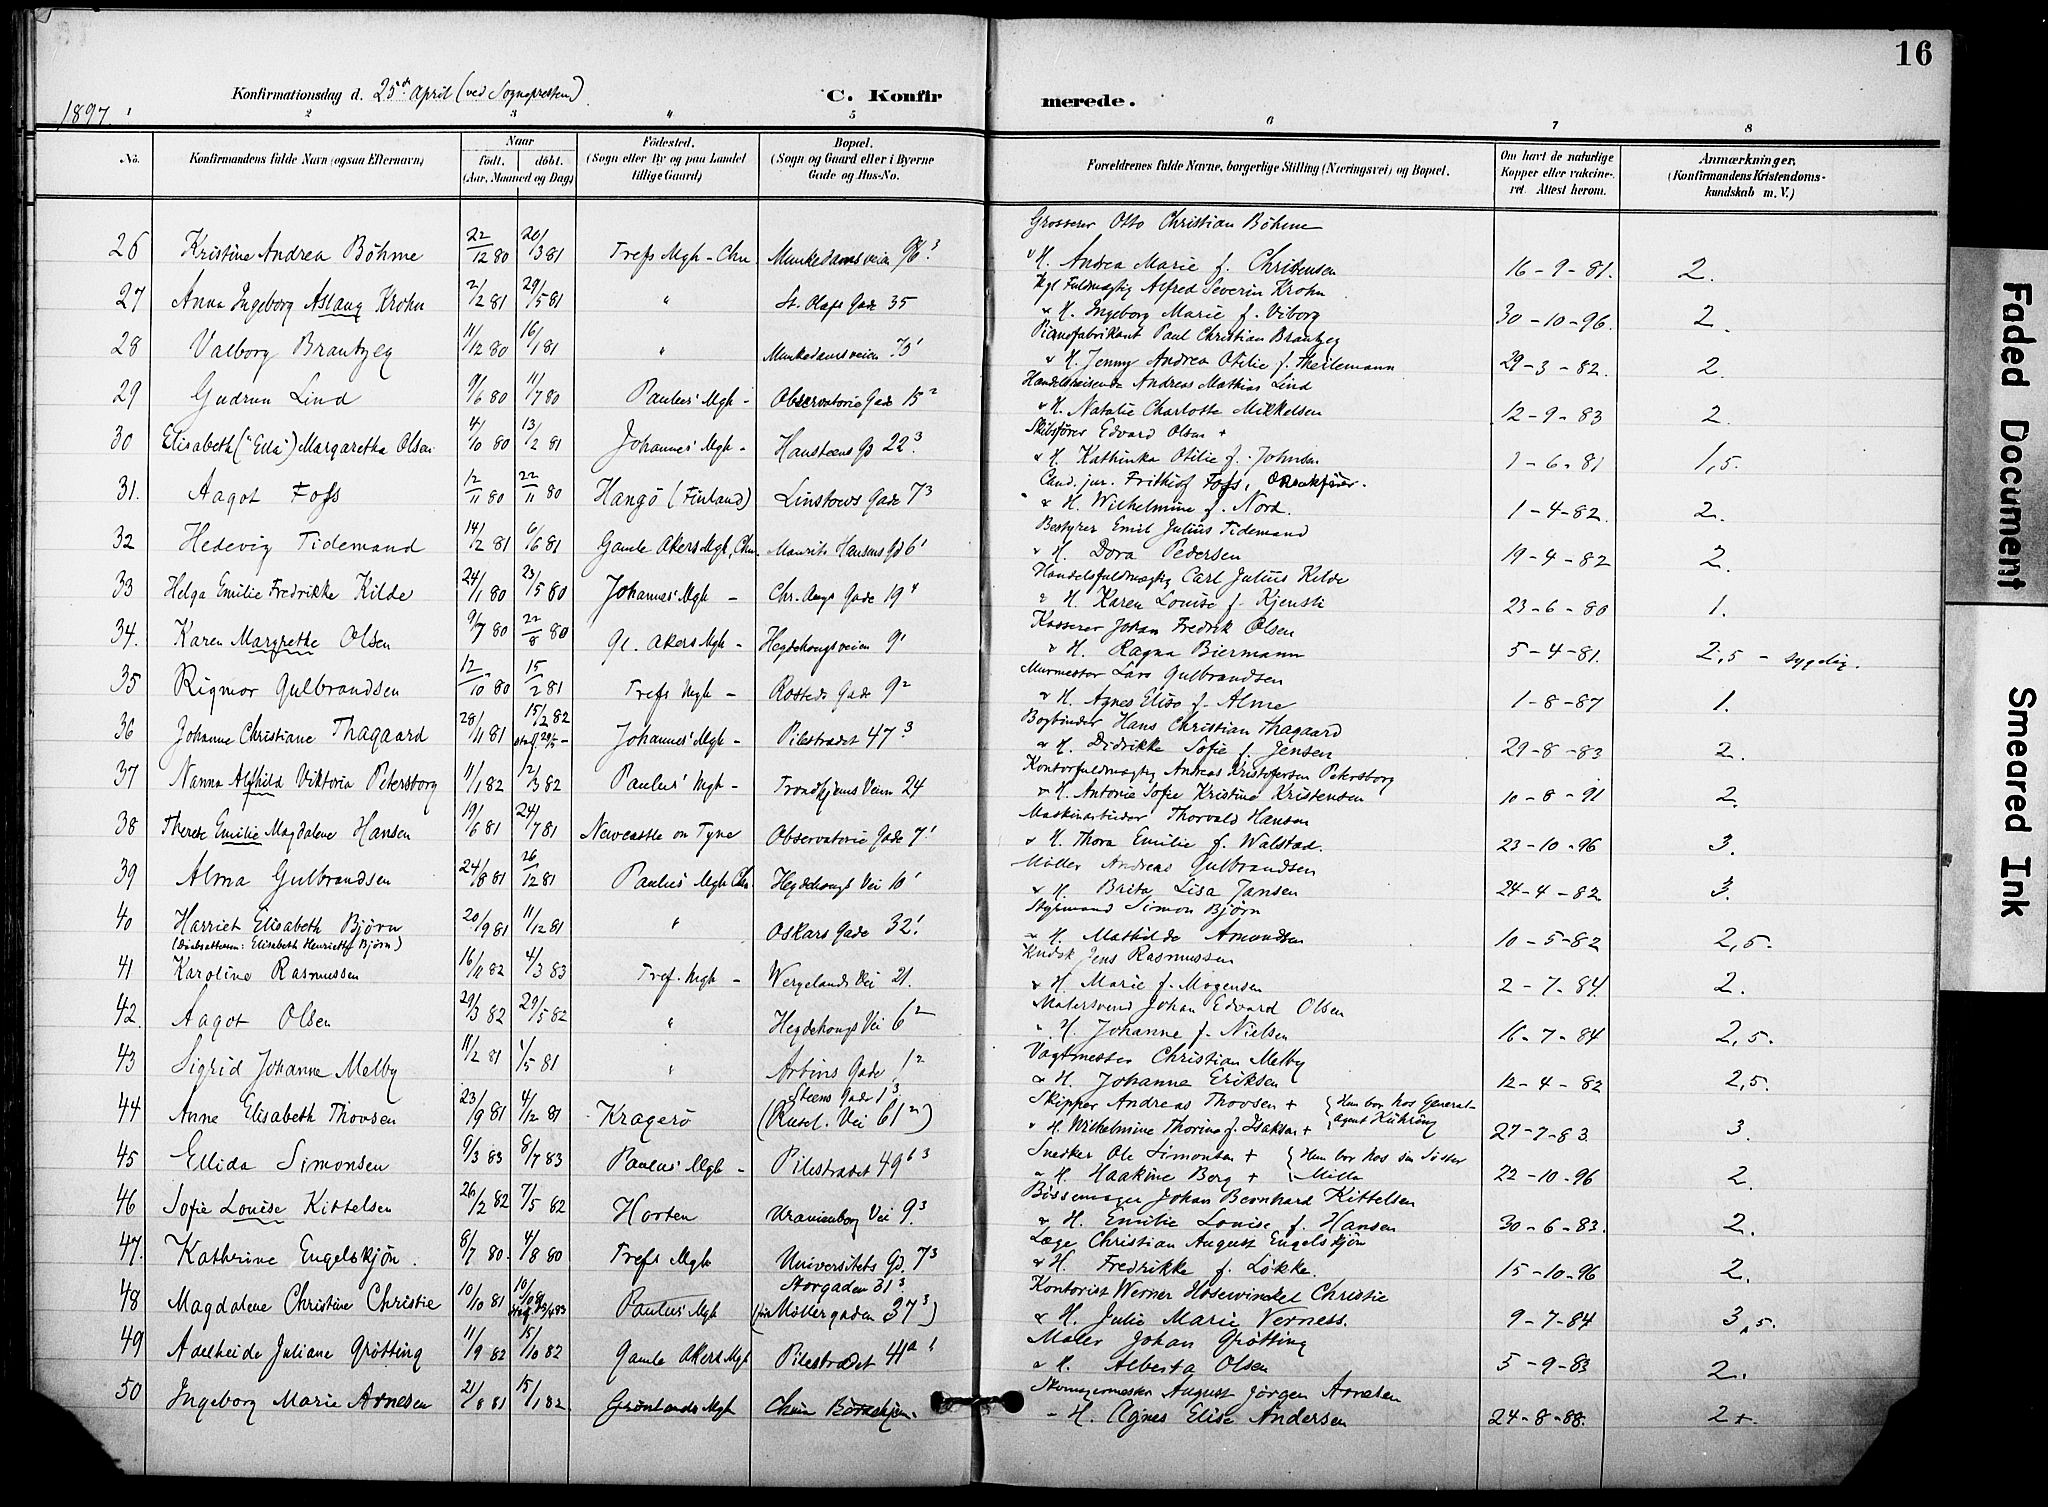 16
1897.
Konfirmationsdag d. 25de April (ved Sognepresten)
C. Konfirmerede.
1 2 3 4 5 6 7 8
No.
Konfirmandens fulde Navn (ogsaa Efternavn)
Naar
født. døbt.
(Aar, Maaned og Dag)
Fødested.
(Sogn eller By og paa Landet
tillige Gaard)
Bopæl.
(Sogn og Gaard eller i Byerne
Gade og Hus-No.
Forældrenes fulde Navne, borgerlige Stilling (Næringsvei) og Bopæl.
Om havt de naturlige
Kopper eller vakcine-
ret. Attest herom.
Anmærkninger,
(Konfirmandens Kristendoms-
kundskab m. V.)
Grosserer Otto Christian Böhme
26 Kristine Andrea Böhme 22/12 80 20/3 81 Trefs Mgh - Chr. Munkedamsveien 96.3 & H. Andrea Marie f. Christensen 16-9-81. 2.
Kgl Fuldmægtig Alfred Severin Krohn
27 Anna Ingeborg Aslaug Krohn 2/2 81 29/5 81 " St. Olafs Gade 35 & H. Ingeborg Marie f. Viborg 30-10-96. 2.
Pianofabrikant Paul Christian Brantzeg
28 Valborg Brantzeg 11/12 80 16/1 81 " Munkedamsveien 73 1 & H. Jenny Andrea Otilie f. Theilemann 29-3-82. 2.
Handelsreisende Andreas Mathias Lind
29 Gudrun Lind 9/6 80 11/7 80 Paulus' Mgh - Observatorie Gade 15 2 & H. Natalie Charlotte Mikkelsen 12-9-83 2.
Skibsfører Edvard Olsen +
30 Elisabeth ("Ella") Margaretha Olsen 4/10 80 13/2 81 Johannes' Mgh - Hansteens G 22.3 & H. Kathinka Otilie f. Johnsen 1-6-81 1,5.
Cand. jur. Frithiof Fofs,
31. Aagot Fofs 12/11 80 22/11 80 Hangö (Finland) Linstows Gade 7 3 & H. Wilhelmine f. Nord. 1-4-82. 2.
Bestyrer Emil Julius Tidemand
32 Hedevig Tidemand 14/2 81 6/6 81 Gamle Akers Mgh, Chr. Maurits Hansens Gd 6 1 & H. Dora Pedersen 19-4-82 2.
Handelsfuldmægtig Carl Julius Kilde
33 Helga Emilie Fredrikke Kilde 24/1 80 23/5 80 Johannes' Mgh - Chr. Augs Gade 19 4 & H. Karen Louise f. 23-6-80 1.
Kasserer Johan Fredrik Olsen
34. Karen Margrethe Olsen 9/7 80 22/8 80 Gl. Akers Mgh - Hegdehaugsveien 9 1 & H. Ragna Biermann 5-4-81. 2,5 - sygelig.
Murmester Lars Gulbrandsen
35 Rigmor Gulbrandsen 12/10 80 15/2 81 Trefs Mgh - Rosteds Gade 9 2 & H. Agnes Elise f. Alme 1-8-87 1.
Bogbinder Hans Christian Thagaard
36 Johanne Christiane Thagaard 28/11 81 15/2 82 Johannes' Mgh - Pilestrædet 47 3 & H. Didrikke Sofie f. Jensen 29-8-83 2.
Kontorfuldmægtig Andreas Kristofersen Petersborg
37 Nanna Alfhild Viktoria Petersborg 11/1 82 12/3 82 Paulus' Mgh - Trondhjems Veien 24 & H. Antonie Sofie Kristine Kristensen 10-8-91 2.
Maskinarbeider Thorvald Hansen
38 Therese Emilie Magdalene Hansen 19/6 81 24/7 81 Newcastle on Tyne Observatorie Gade 7.1 & H. Thora Emilie f. Walstad. 23-10-96 3.
Møller Andreas Gulbrandsen
39 Alma Gulbrandsen 24/8 81 26/12 81 Paulus' Mgh Chr. Hegdehaugs Vei 10 1 & H. Brita Lisa Jansen 24-4-82 3.
Styrmand Simon Bjørn
40 Harriet Elisabeth Bjørn 20/9 81 11/12 81 " Oskars Gade 32.1 & H. Mathilde Amundsen 10-5-82 2,5.
(Daabsattesten: Elisabeth Henriette Bjørn)
Kudsk Jens Rasmussen
41 Karoline Rasmussen 16/11 82 4/3 83 Tref. Mgh - Wergelands Vei 21. & H. Marie f. Mogensen 2-7-84. 2.
Malersvend Johan Edvard Olsen
42. Aagot Olsen 29/3 82 29/5 82 " Hegdehaugs Vei 6 2 & H. Johanne f. Nielsen 16-7-84 2,5.
Vagtmester Christian Melby
43 Sigrid Johanne Melby 11/2 81 1/5 81 " Arbins Gade 1 2 & H. Johanne Eriksen 12-4-82 2,5.
Steens Gade 1 3. Skipper Andreas Thovsen + {Hun bor hos General-
44 Anne Elisabeth Thovsen 23/9 81 4/12 81 Kragerø (Rusel. Vei 61 2) & H. Wilhelmine Thorine f. Isaksen + agent 27-7-83. 3.
Snedker Ole Simonsen + {Hun bor hos sin Søster
45 Ellida Simonsen 9/3 83 8/7 83 Paulus' Mgh - Pilestrædet 49 b 3 & H. Haakine Borg + Milla 22-10-96 2.
Bøssemager Johan Bernhard Kittelsen
46 Sofie Louise Kittelsen 26/2 82 7/5 82 Horten Uranienborg Vei 9.3 & H. Emilie Louise f. Hansen 30-6-83. 2.
Læge Christian August Engelskjøn
47. Kathrine Engelskjøn. 8/7 80. 4/8 80 Trefs Mgh Universitets Gd. 7 3 & H. Fredrikke f. Løkke. 15-10-96 2.
Storgaden 31 3 Kontorist Werner Hosewinckel Christie
48 Magdalene Christine Christie 10/10 81 Paulus' Mgh (fra Møllergaden 37 3) & H. Julie Marie Verness. 9-7-84 3,5.
Maler Johan Grøtting
49 Adelheide Juliane Grøtting 11/9 82 15/10 82 Gamle Akers Mgh Pilestrædet 41 a 1 & H. Alberta Olsen 5-9-83 2.
Skomagermester August Jørgen Arnesen
50 Ingeborg Marie Arnesen 21/8 81 15/1 82. Grønlands Mgh - H. Agnes Elise Andersen 24-8-88. 2+
Faded Document
Smeared Ink